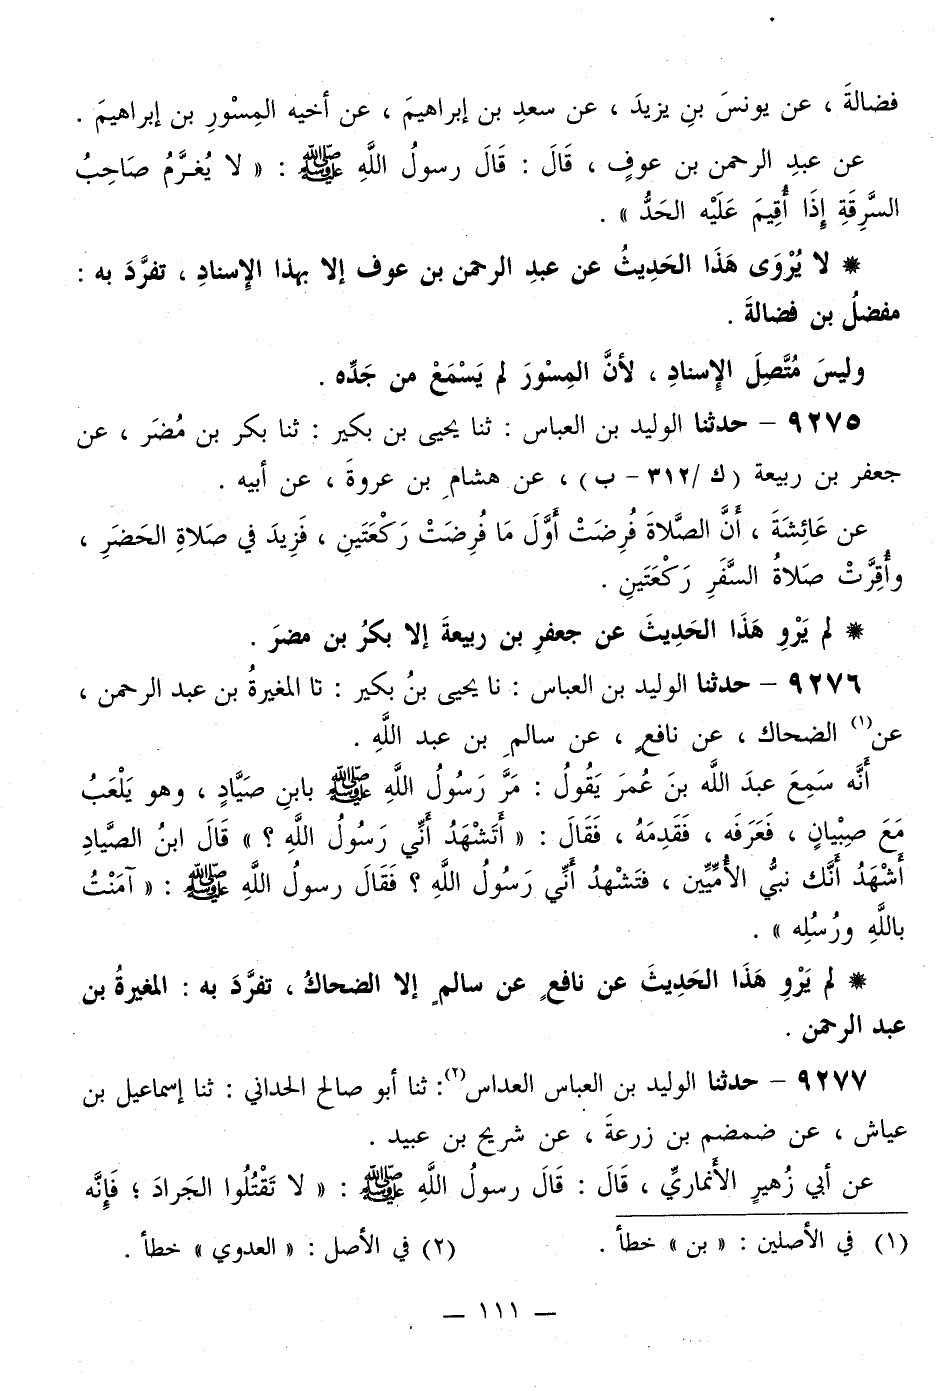 فضالةَ ، عن يونسَ بنِ يزيدَ ، عن سعدِ بن إبراهيمَ ، عن أخيه المِسْوَرِ بن إبراهيمَ .
عن عبدِ الرحمن بن عوفٍ ، قَالَ : قَالَ رسولُ اللَّهِ ﷺ : « لا يُغرَّمُ صَاحِبُ
السَّرِقَةِ إِذَا أُقِيمَ عَلَيْه الحَدُّ » .
* لا يُرْوَى هَذَا الحَدِيثُ عن عبدِ الرحمن بن عوف إلا بهذا الإسنادِ ، تفرَّدَ به :
مفضلُ بن فضالةَ .
وليسَ مُتَّصِلَ الإسنادِ ، لأنَّ المِسْورَ لم يَسْمَعْ من جَدِّه .
٩٢٧٥ – حدثنا الوليد بن العباس : ثنا يحيى بن بكير : ثنا بكر بن مُضَر ، عن
جعفر بن ربيعة (ك /٣١٢ – ب) ، عن هشامِ بن عروةَ ، عن أبيه .
عن عَائِشَةَ ، أَنَّ الصَّلاةَ فُرِضَتْ أَوَّلَ مَا فُرِضَتْ رَكْعَتَينِ ، فَزِيدَ في صَلاةِ الحَضَرِ ،
وأُقِرَّتْ صَلاةُ السَّفَرِ رَكْعَتَينِ .
* لم يَرْوِ هَذَا الحَدِيثَ عن جعفرِ بن ربيعةَ إلا بكرُ بن مضرَ .
٩٢٧٦ – حدثنا الوليد بن العباس : نا يحيى بنُ بكير : نا المغيرةُ بن عبد الرحمن ،
عن(١) الضحاك ، عن نافعٍ ، عن سالمِ بن عبد اللَّهِ .
أَنَّه سَمِعَ عبدَ اللَّه بنَ عُمَرَ يَقُولُ : مَرَّ رَسُولُ اللَّهِ ﷺ بابنِ صَيَّادٍ ، وهو يَلْعَبُ
مَعَ صِبْيانٍ ، فَعَرَفَه ، فَقَدِمَهُ ، فَقَالَ : « أَتَشْهَدُ أَنِّي رَسُولُ اللَّهِ ؟ » قَالَ ابنُ الصَّيادِ
أَشْهَدُ أَنَّك نبيُّ الأُمِّيِّين ، فتَشْهدُ أَنِّي رَسُولُ اللَّهِ ؟ فَقَالَ رسولُ اللَّهِ ﷺ : « آمَنْتُ
باللَّهِ ورُسُلِه » .
* لم يَرْوِ هَذَا الحَدِيثَ عن نافعٍ عن سالمٍ إلا الضحاكُ ، تفرَّدَ به : المغيرةُ بن
عبد الرحمن .
٩٢٧٧ – حدثنا الوليد بن العباس العداس(٢): ثنا أبو صالح الحداني : ثنا إسماعيل بن
عياش ، عن ضمضم بن زرعةَ ، عن شريح بن عبيد .
عن أبي زُهيرٍ الأَنماريِّ ، قَالَ : قَالَ رسولُ اللَّهِ ﷺ : « لا تَقْتُلُوا الجَرادَ ؛ فَإِنَّه
(١) في الأصلين : « بن » خطأ . (٢) في الأصل : « العدوي » خطأ .
— ١١١ —